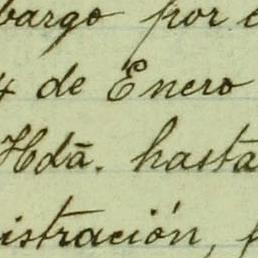 bargo por e
4 de Enero
Hdā. hasta
istración, f